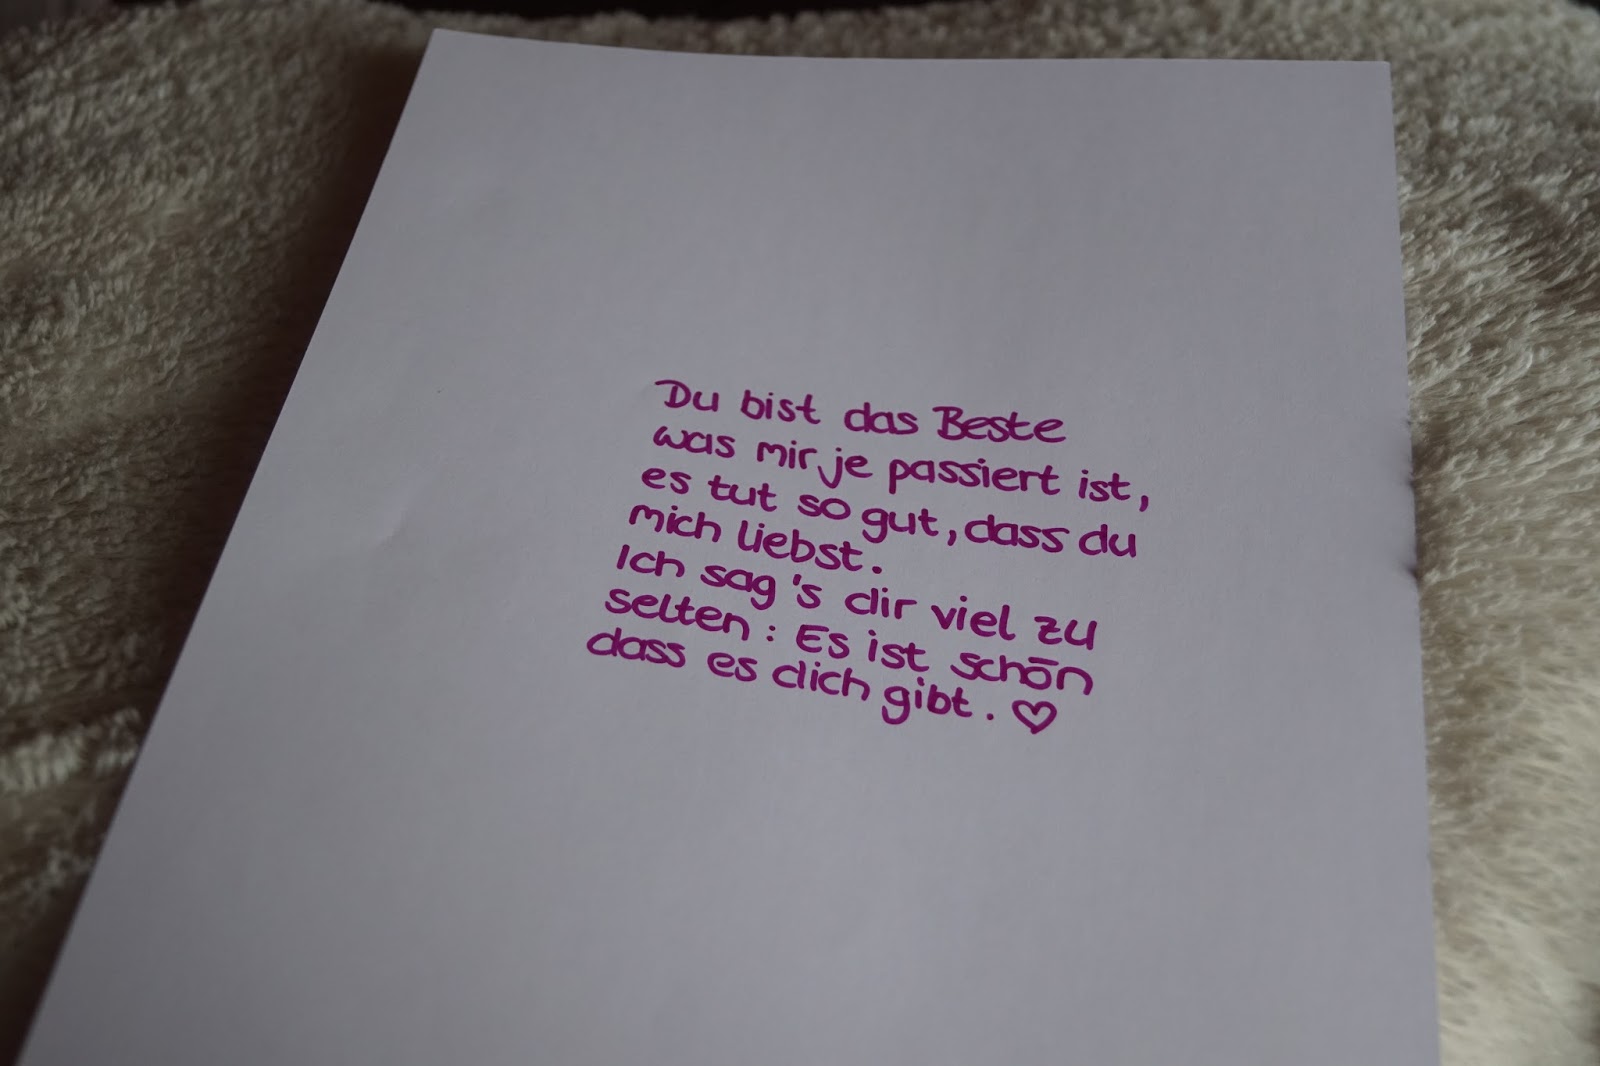 Du bist das Beste
was mir je passiert ist,
es tut so gut, dass du
mich liebst.
Ich sag's dir viel zu
selten: Es ist schön
dass es dich gibt. ♡